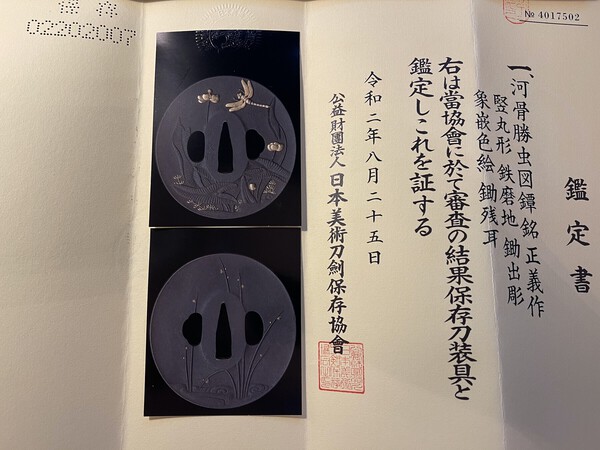 № 4017502
鑑定書
一、河骨勝虫図鐔 銘 正義作
竪丸形 鉄磨地 鋤出彫
象嵌色絵 鋤残耳
右は當協會に於て審査の結果保存刀装具と
鑑定しこれを証する
令和二年八月二十五日
公益財團法人 日本美術刀劍保存協會
02202007